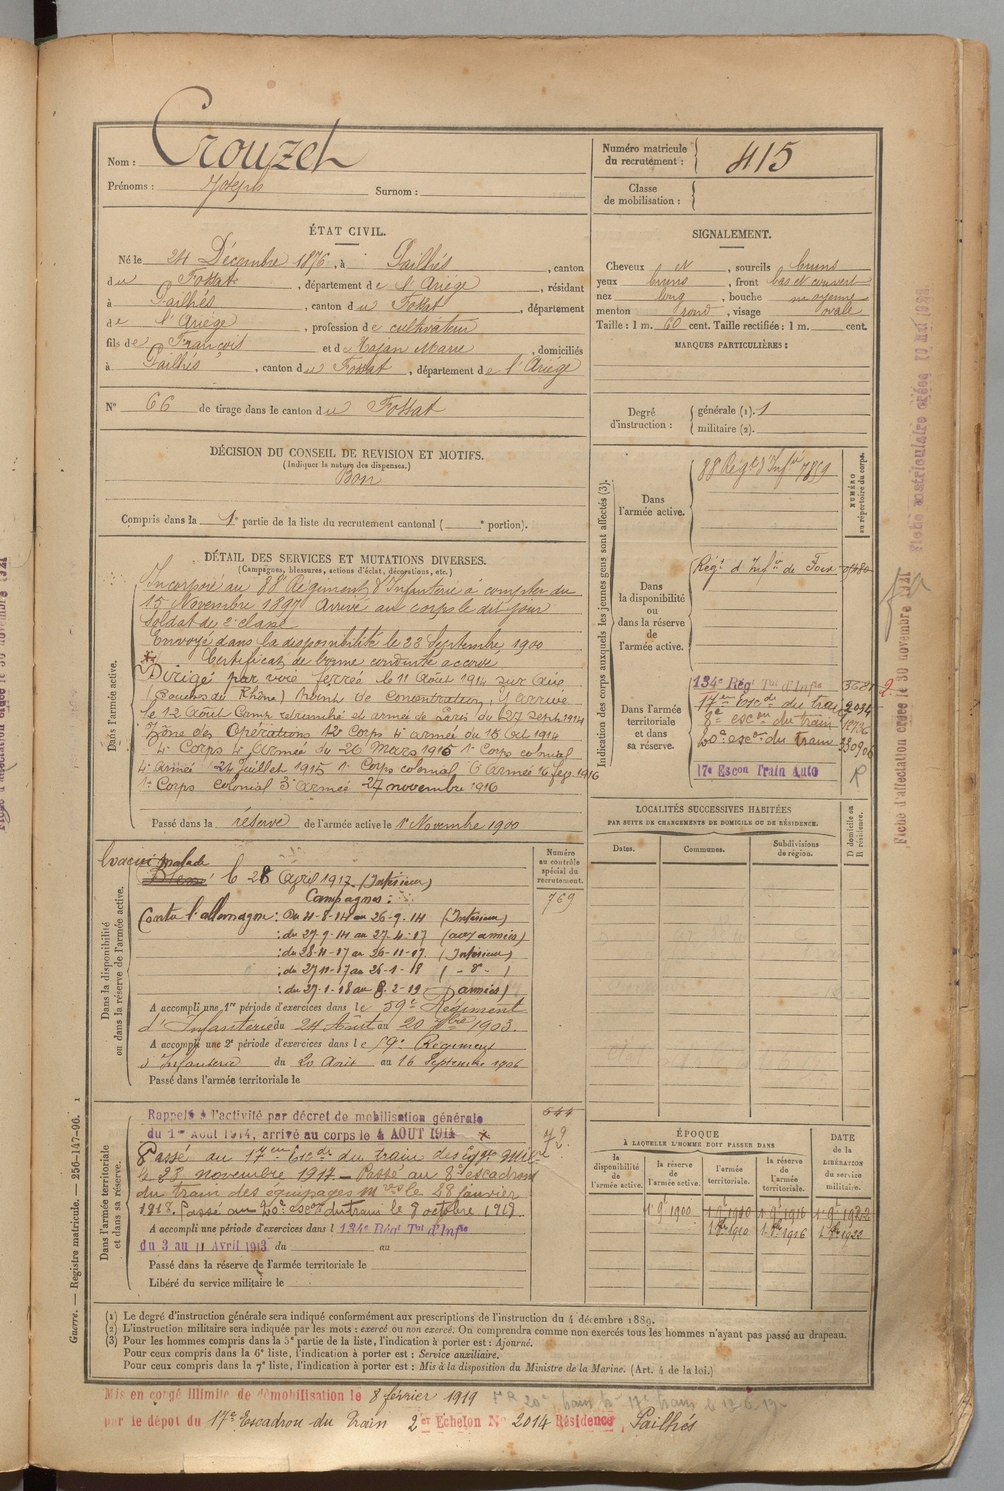 Nom : Crouzet
Prénoms : Joseph Surnom :
Numéro matricule du recrutement : 415
Classe de mobilisation :
ÉTAT CIVIL.
Né le 24 Décembre 1876, à Pailhés, canton
du Fossat, département de l'Ariége, résidant
à Pailhés, canton du Fossat, département
de l'Ariége, profession de cultivateur
fils de François et de Tajan Marie, domiciliés
à Pailhés, canton du Fossat, département de l'Ariége
N° 66 de tirage dans le canton du Fossat
SIGNALEMENT.
Cheveux et, sourcils bruns
yeux bruns, front bas et couvert
nez long, bouche moyenne
menton rond, visage ovale
Taille : 1 m. 60 cent. Taille rectifiée : 1 m. cent.
MARQUES PARTICULIÈRES :
Degré d'instruction : générale (1). 1
militaire (2).
DÉCISION DU CONSEIL DE REVISION ET MOTIFS.
(Indiquer la nature des dispenses.)
Bon
Compris dans la 1e partie de la liste du recrutement cantonal ( e portion).
DÉTAIL DES SERVICES ET MUTATIONS DIVERSES.
(Campagnes, blessures, actions d'éclat, décorations, etc.)
Dans l'armée active.
Incorporé au 88e Régiment d'Infanterie à compter du
15 Novembre 1897 Arrivé au corps le dit jour
Soldat de 2e classe
Envoyé dans la disponibilité le 23 Septembre 1900
Certificat de bonne conduite accordé
Dirigé par voie ferrée le 11 Août 1914 sur Aix
(Bouches du Rhône) Point de Concentration, y arrivé
le 12 Août Camp retranché et armée de Paris du 27 Sept. 1914
Zône des Opérations 12e Corps 4e armée du 15 Oct 1914
4e Corps 4e Armée du 26 Mars 1915 1e Corps colonial
4e Armée 24 Juillet 1915 1e Corps colonial 6e Armée 16 Sep. 1916
1e Corps colonial 3e Armée 27 novembre 1916
Passé dans la réserve de l'armée active le 1er Novembre 1900
Indication des corps auxquels les jeunes gens sont affectés (3).
NUMÉRO au répertoire du corps.
Dans l'armée active.
88 Régt d'Infie 7859
Dans la disponibilité ou dans la réserve de l'armée active.
Régt d'Infie de Foix
Dans l'armée territoriale et dans sa réserve.
134e Régt Tal d'Infie
17me Escon du train 2034
8e escon du train
20e escon du train
17e Escon Train Auto R
LOCALITÉS SUCCESSIVES HABITÉES
PAR SUITE DE CHANGEMENTS DE DOMICILE OU DE RÉSIDENCE.
Dates. Communes. Subdivisions de région. D domicile ou R résidence.
Numéro au contrôle spécial du recrutement.
769
Dans la disponibilité ou dans la réserve de l'armée active.
Evacué malade
le 28 Avril 1917 (Intérieur)
Campagnes :
Contre l'allemagne : Du 11-8-14 au 26-9-14 (Intérieur)
: du 27-9-14 au 27-4-17 (aux armées)
: du 28-4-17 au 26-11-17 (Intérieur)
: du 27-11-17 au 26-1-18 ( - d° - )
: du 27-1-18 au 8-2-19 (armées)
A accompli une 1re période d'exercices dans le 59e Régiment
d'Infanterie du 24 Août au 20 7bre 1903.
A accompli une 2e période d'exercices dans le 59e Régiment
d'Infanterie du 20 Août au 16 Septembre 1906
Passé dans l'armée territoriale le
Dans l'armée territoriale et dans sa réserve.
Rappelé à l'activité par décret de mobilisation générale
du 1er Août 1914, arrivé au corps le 4 AOUT 1914
Passé au 17me Escon du train des éqges milres
le 25 novembre 1917 - Passé au 8e escadron
du train des équipages mres le 28 janvier
1918. Passé au 20e escon du train le 9 octobre 1918
A accompli une période d'exercices dans le 134e Régt Tal d'Infie
du 3 au 11 Avril 1913 du au
Passé dans la réserve de l'armée territoriale le
Libéré du service militaire le
644
72
ÉPOQUE
À LAQUELLE L'HOMME DOIT PASSER DANS
la disponibilité de l'armée active. la réserve de l'armée active. l'armée territoriale. la réserve de l'armée territoriale. DATE de la LIBÉRATION du service militaire.
1 9e 1900 1 9e 1910 1 9e 1916 1 9e 1922
1 8bre 1910 1 8bre 1916 1 8bre 1922
(1) Le degré d'instruction générale sera indiqué conformément aux prescriptions de l'instruction du 4 décembre 1889.
(2) L'instruction militaire sera indiquée par les mots : exercé ou non exercé. On comprendra comme non exercés tous les hommes n'ayant pas passé au drapeau.
(3) Pour les hommes compris dans la 5e partie de la liste, l'indication à porter est : Ajourné.
Pour ceux compris dans la 6e liste, l'indication à porter est : Service auxiliaire.
Pour ceux compris dans la 7e liste, l'indication à porter est : Mis à la disposition du Ministre de la Marine. (Art. 4 de la loi.)
Mis en congé illimité de démobilisation le 8 février 1919
par le dépot du 17e Escadron du train 2er Echelon No 2014 Résidence, Pailhés
Guerre. — Registre matricule. — 256-147-96. 1
Fiche matriculaire créée
Fiche d'affectation créée le 30 novembre 1921